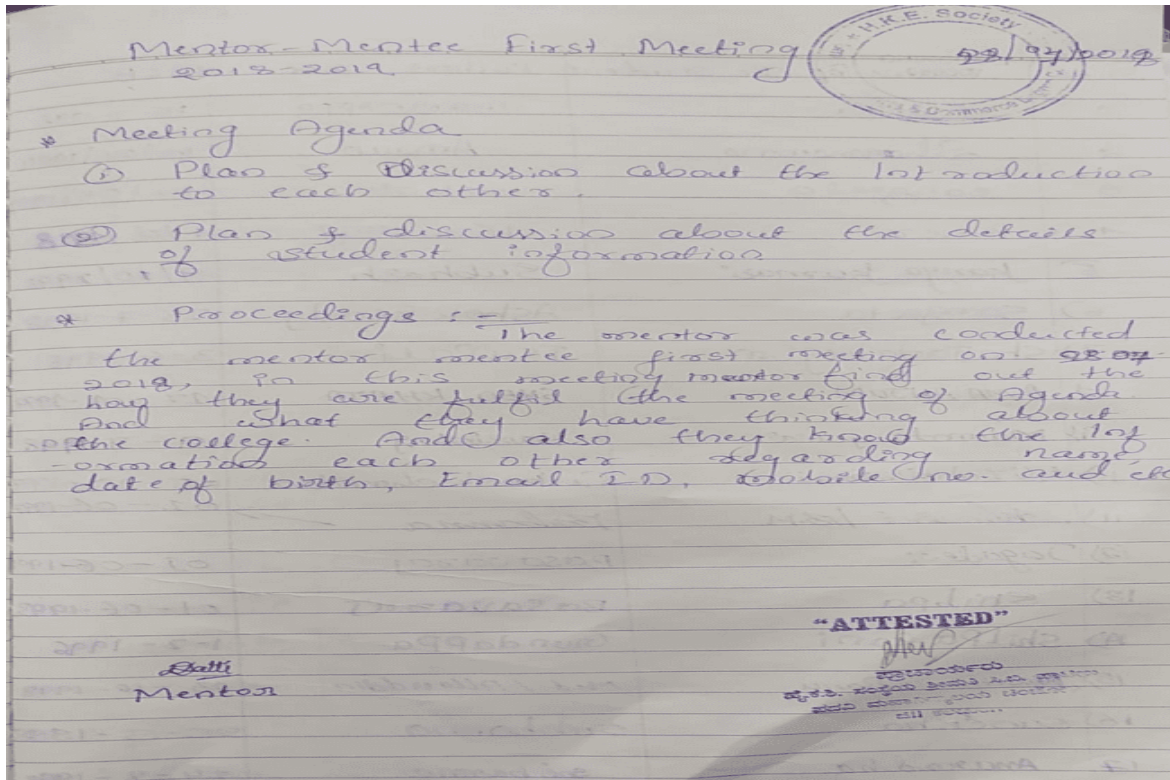 H.K.E. Society
Mentor-Mentee First Meeting
2018-2019
* Meeting Agenda
① Plan & Discussion about the Introduction
to each other.
② Plan & discussion about the details
of student information
* Proceedings :- The mentor was conducted
the mentor mentee first meeting on
2018, in this meeting mentor find out the
how they are fulfil the meeting of Agenda
And what they have thinking about
the college. And also they know the Inf
-ormation each other regarding name,
date of birth, Email ID, Mobile no. and etc
"ATTESTED"
Mentor